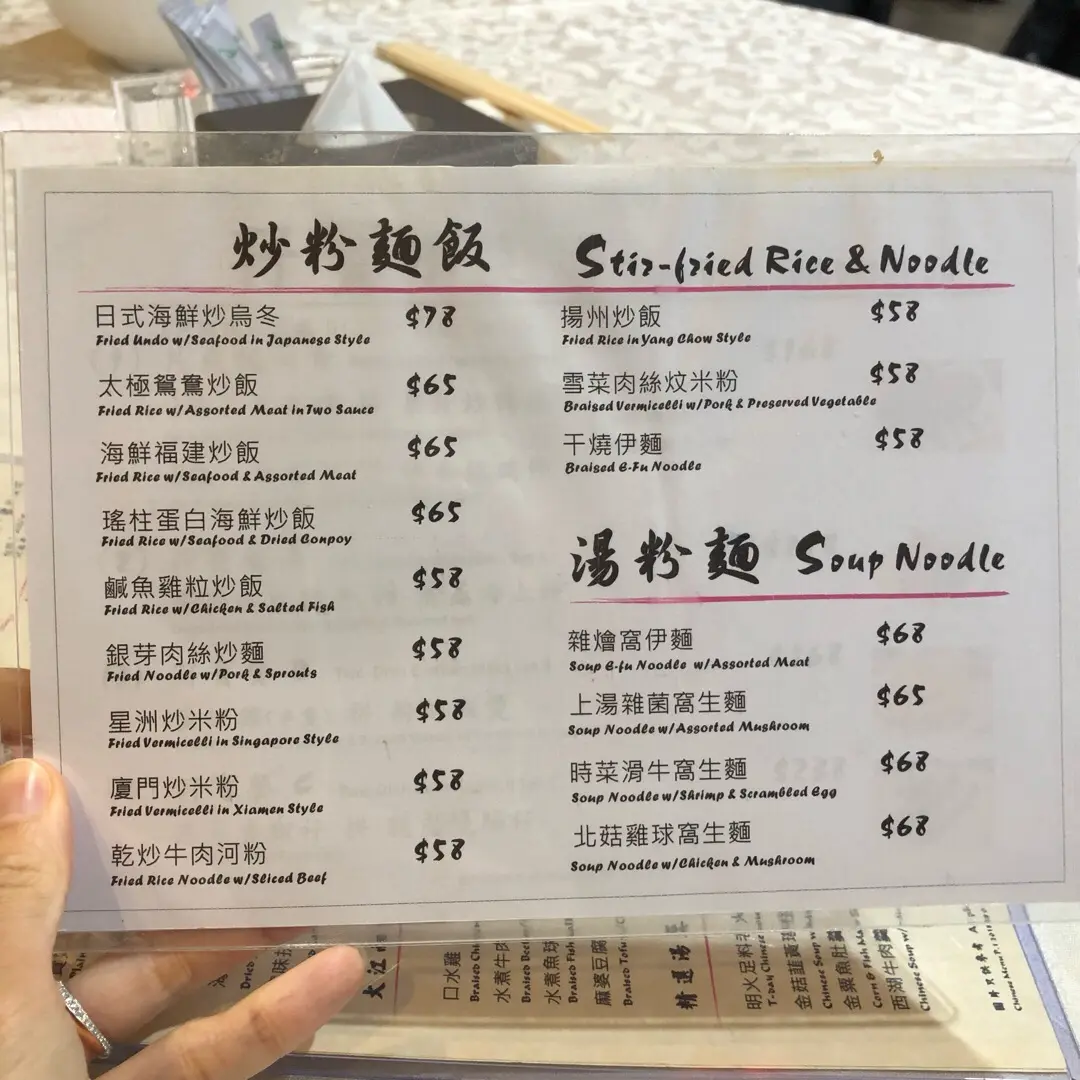 炒粉麵飯 Stir-fried Rice & Noodle
日式海鮮炒烏冬 $78
Fried Undo w/Seafood in Japanese Style
太極鴛鴦炒飯 $65
Fried Rice w/Assorted Meat in Two Sauce
海鮮福建炒飯 $65
Fried Rice w/Seafood & Assorted Meat
瑤柱蛋白海鮮炒飯 $65
Fried Rice w/Seafood & Dried Conpoy
鹹魚雞粒炒飯 $58
Fried Rice w/Chicken & Salted Fish
銀芽肉絲炒麵 $58
Fried Noodle w/Pork & Sprouts
星洲炒米粉 $58
Fried Vermicelli in Singapore Style
廈門炒米粉 $58
Fried Vermicelli in Xiamen Style
乾炒牛肉河粉 $58
Fried Rice Noodle w/Sliced Beef
揚州炒飯 $58
Fried Rice in Yang Chow Style
雪菜肉絲炆米粉 $58
Braised Vermicelli w/Pork & Preserved Vegetable
干燒伊麵 $58
Braised E-Fu Noodle
湯粉麵 Soup Noodle
雜燴窩伊麵 $68
Soup E-fu Noodle w/Assorted Meat
上湯雜菌窩生麵 $65
Soup Noodle w/Assorted Mushroom
時菜滑牛窩生麵 $68
Soup Noodle w/Shrimp & Scrambled Egg
北菇雞球窩生麵 $68
Soup Noodle w/Chicken & Mushroom
大江
口水雞
Braised
水煮牛肉
Braised Beef
水煮魚球
Braised Fish
麻婆豆腐
Braised Tofu
精選湯
明火足料
Chinese
金菇韮黃
Chinese Soup
金粟魚肚羹
Corn & Fish
西湖牛肉羹
Chinese Soup w/
圖片只供參考
Chinese Menu